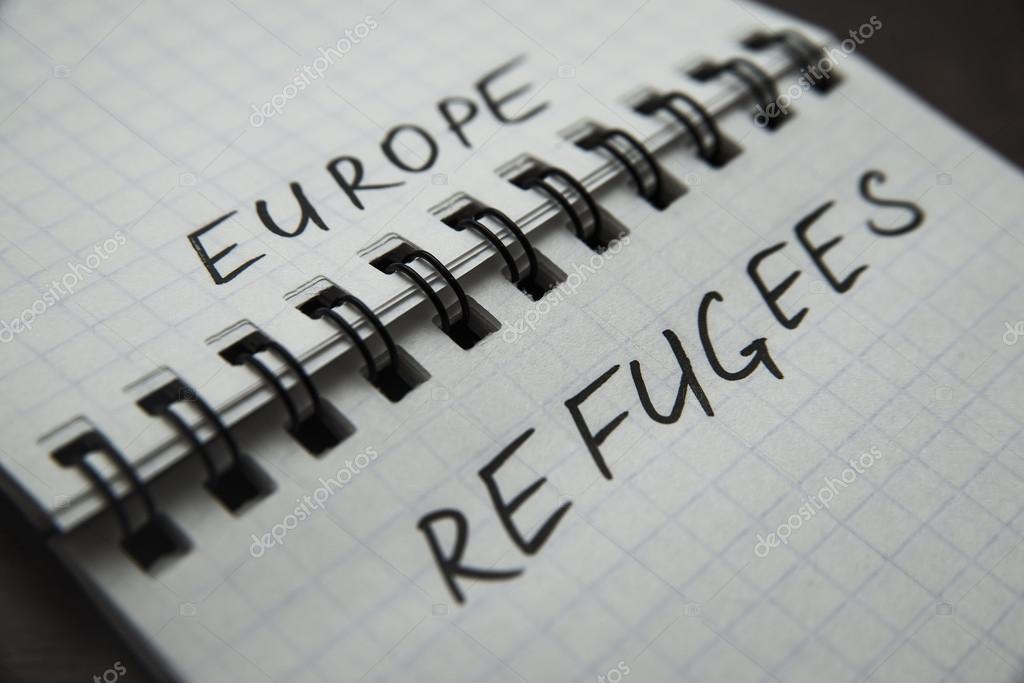 EUROPE
REFUGEES
depositphotos
depositphotos
depositphotos
depositphotos
depositphotos
depositphotos
depositphotos